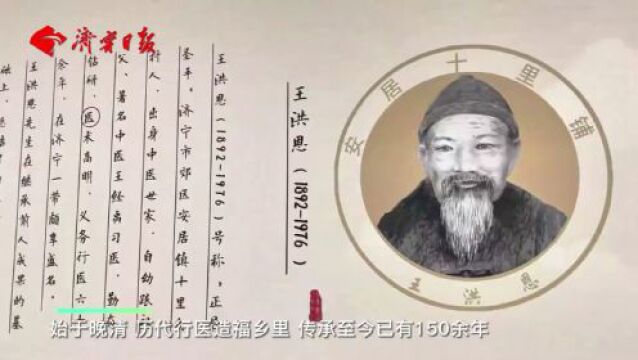 济宁日报
安居十里铺
王洪恩
王洪恩(1892-1976)
王洪恩(1892-1976)号称
圣手,济宁市郊区安居镇十里
村人,出身中医世家,自幼跟
父、著名中医王经离习医,勤
钻研,医术高明,义务行医六
余年,在济宁一带颇享盛名。
王洪恩先生在继承前人成果的基
础上,
始于晚清 历代行医造福乡里 传承至今已有150余年